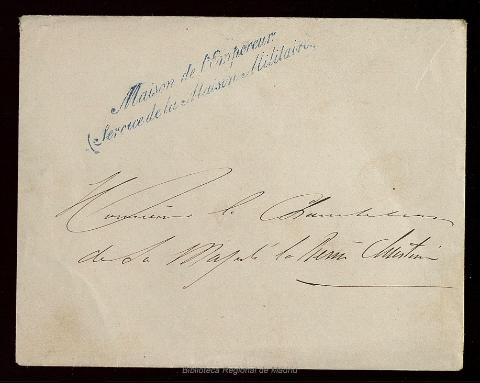 Maison de l'Empereur.
(Service de la Maison Militaire)
Monsieur le Chambellan
de Sa Majesté la Reine Christine
Biblioteca Regional de Madrid